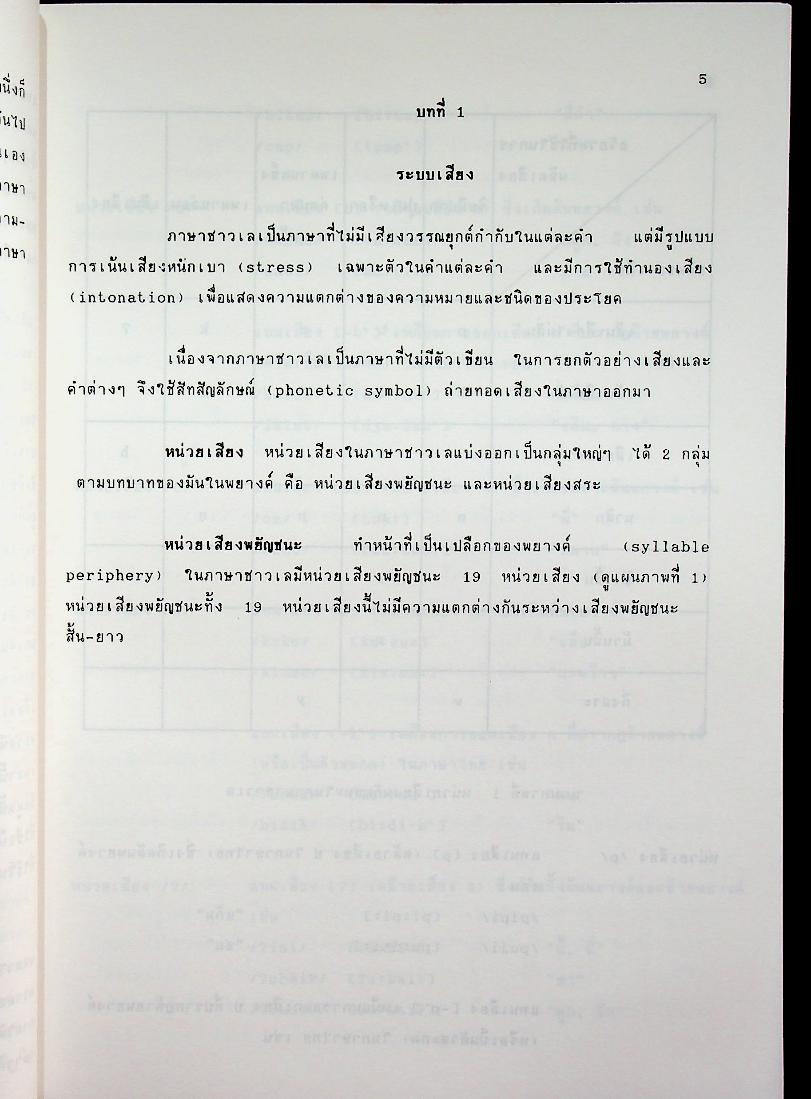 5
บทที่ 1
ระบบเสียง
ภาษาชาวเลเป็นภาษาที่ไม่มีเสียงวรรณยุกต์กำกับในแต่ละคำ แต่มีรูปแบบ
การเน้นเสียงหนักเบา (stress) เฉพาะตัวในคำแต่ละคำ และมีการใช้ทำนองเสียง
(intonation) เพื่อแสดงความแตกต่างของความหมายและชนิดของประโยค
เนื่องจากภาษาชาวเลเป็นภาษาที่ไม่มีตัวเขียน ในการยกตัวอย่างเสียงและ
คำต่างๆ จึงใช้สัทสัญลักษณ์ (phonetic symbol) ถ่ายทอดเสียงในภาษาออกมา
หน่วยเสียง หน่วยเสียงในภาษาชาวเลแบ่งออกเป็นกลุ่มใหญ่ๆ ได้ 2 กลุ่ม
ตามบทบาทของมันในพยางค์ คือ หน่วยเสียงพยัญชนะ และหน่วยเสียงสระ
หน่วยเสียงพยัญชนะ ทำหน้าที่เป็นเปลือกของพยางค์ (syllable
periphery) ในภาษาชาวเลมีหน่วยเสียงพยัญชนะ 19 หน่วยเสียง (ดูแผนภาพที่ 1)
หน่วยเสียงพยัญชนะทั้ง 19 หน่วยเสียงนี้ไม่มีความแตกต่างกันระหว่างเสียงพยัญชนะ
สั้น-ยาว